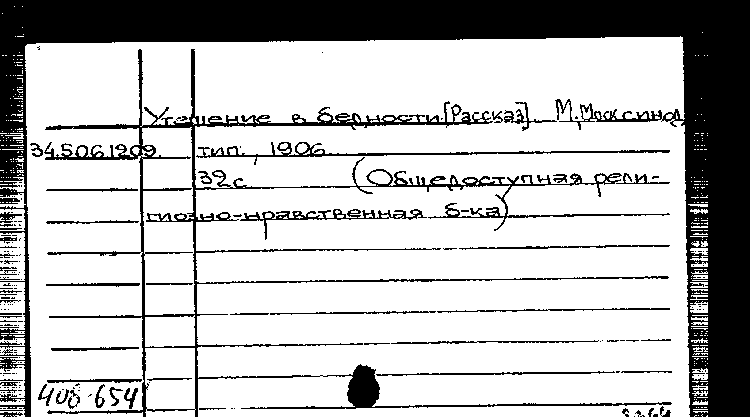 Утешение в бедности [Рассказ]. М, Моск синод.
34.5.06.1209. тип., 1906.
32 с (Общедоступная рели-
гиозно-нравственная б-ка)
408-654